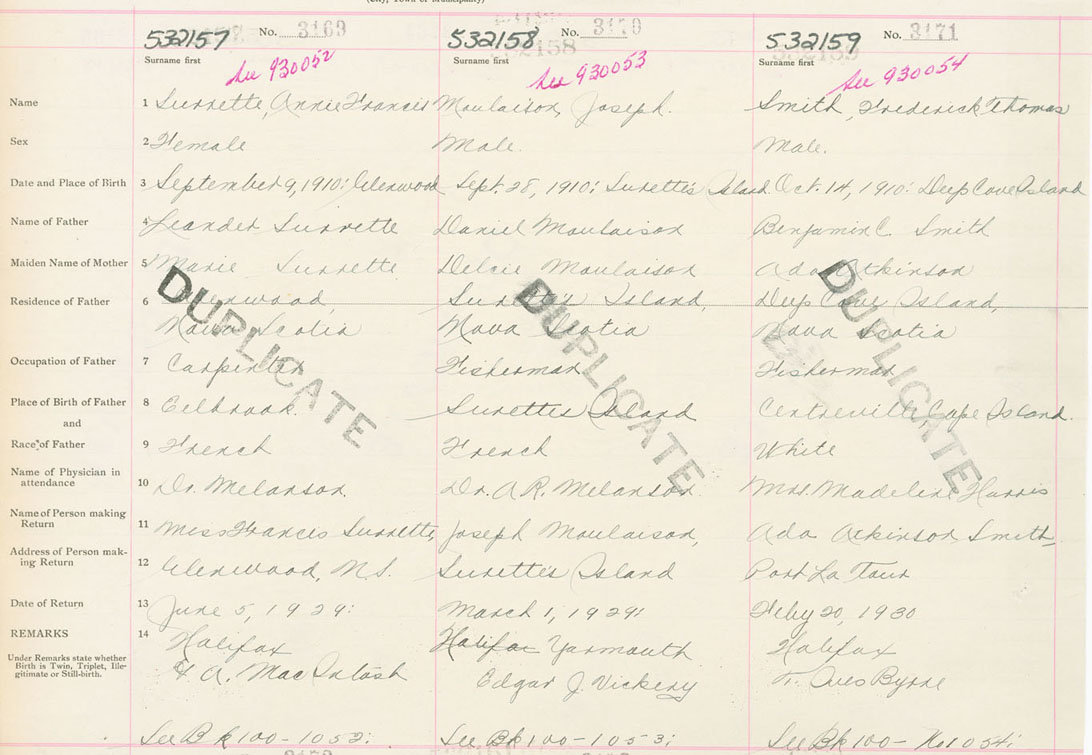 (City, Town or Municipality)
532157 No. 3169
Surname first
See 930052
532158 No. 3170
Surname first
See 930053
532159 No. 3171
Surname first
See 930054
Name 1 Surrette, Annie Francis Moulaison, Joseph. Smith, Frederick Thomas
Sex 2 Female Male. Male.
Date and Place of Birth 3 September 9, 1910: Glenwood Sept. 28, 1910: Surette's Island Oct. 14, 1910: Deep Cove Island
Name of Father 4 Leander Surrette Daniel Moulaison Benjamin C. Smith
Maiden Name of Mother 5 Marie Surrette Delcie Moulaison Ada Atkinson
Residence of Father 6 Glenwood, Surette's Island, Deep Cove Island,
Nova Scotia Nova Scotia Nova Scotia
DUPLICATE DUPLICATE DUPLICATE
Occupation of Father 7 Carpenter Fisherman Fisherman
Place of Birth of Father 8 Eelbrook. Surettes Island Centreville, Cape Island.
and
Race of Father 9 French French White
Name of Physician in
attendance 10 Dr. Melanson. Dr. A.R. Melanson. Mrs. Madeline Harris
Name of Person making
Return 11 Miss Francis Surrette, Joseph Moulaison, Ada Atkinson Smith,
Address of Person mak-
ing Return 12 Glenwood, N.S. Surette's Island Port La Tour
Date of Return 13 June 5, 1929: March 1, 1929: Feby 20, 1930
REMARKS 14 Halifax Halifax Yarmouth Halifax
Under Remarks state whether
Birth is Twin, Triplet, Ille-
gitimate or Still-birth.
A. MacIntosh Edgar J. Vickery Byrne
See Bk 100-1052: See Bk 100-1053: See Bk 100- No 1054: